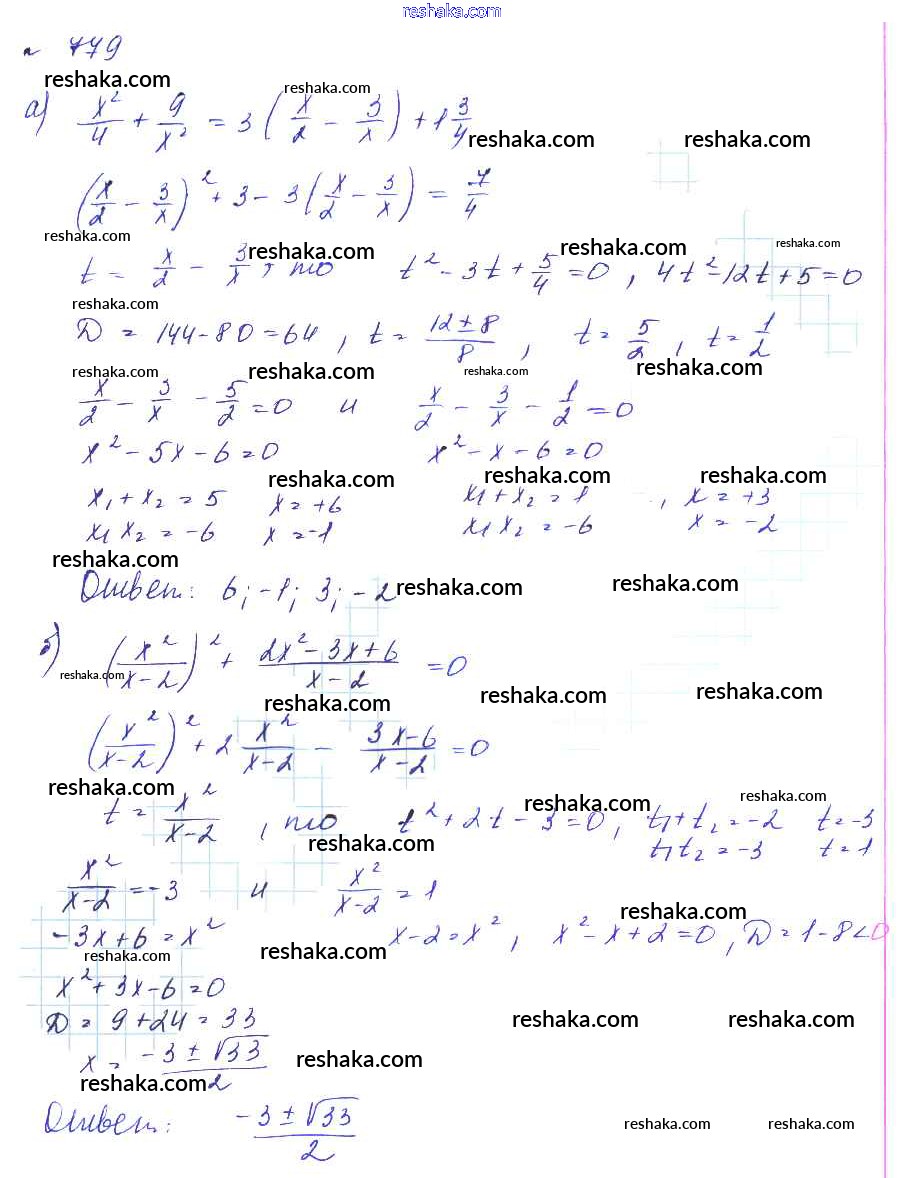 reshaka.com
n 779
reshaka.com reshaka.com
а) x²/4 + 9/x² = 3 (x/2 - 3/x) + 1 3/4
reshaka.com reshaka.com
(x/2 - 3/x)² + 3 - 3(x/2 - 3/x) = 7/4
reshaka.com reshaka.com reshaka.com reshaka.com
t = x/2 - 3/x, то t² - 3t + 5/4 = 0, 4t² - 12t + 5 = 0
reshaka.com
D = 144 - 80 = 64, t = (12 ± 8)/8, t = 5/2, t = 1/2
reshaka.com reshaka.com reshaka.com reshaka.com
x/2 - 3/x - 5/2 = 0 и x/2 - 3/x - 1/2 = 0
x² - 5x - 6 = 0 x² - x - 6 = 0
reshaka.com reshaka.com reshaka.com
x₁ + x₂ = 5 x = +6 x₁ + x₂ = 1, x = +3
x₁ x₂ = -6 x = -1 x₁ x₂ = -6 x = -2
reshaka.com
Ответ: 6; -1; 3; -2 reshaka.com reshaka.com
б) (x²/(x-2))² + (2x² - 3x + 6)/(x-2) = 0
reshaka.com reshaka.com reshaka.com reshaka.com
(x²/(x-2))² + 2 x²/(x-2) - (3x-6)/(x-2) = 0
reshaka.com reshaka.com reshaka.com
t = x²/(x-2), то t² + 2t - 3 = 0, t₁ + t₂ = -2 t = -3
t₁ t₂ = -3 t = 1
reshaka.com
x²/(x-2) = -3 и x²/(x-2) = 1
reshaka.com
-3x + 6 = x² x - 2 = x², x² - x + 2 = 0, D = 1 - 8 < 0
reshaka.com reshaka.com
x² + 3x - 6 = 0
D = 9 + 24 = 33 reshaka.com reshaka.com
x = (-3 ± √33)/2 reshaka.com
reshaka.com
Ответ: (-3 ± √33)/2 reshaka.com reshaka.com